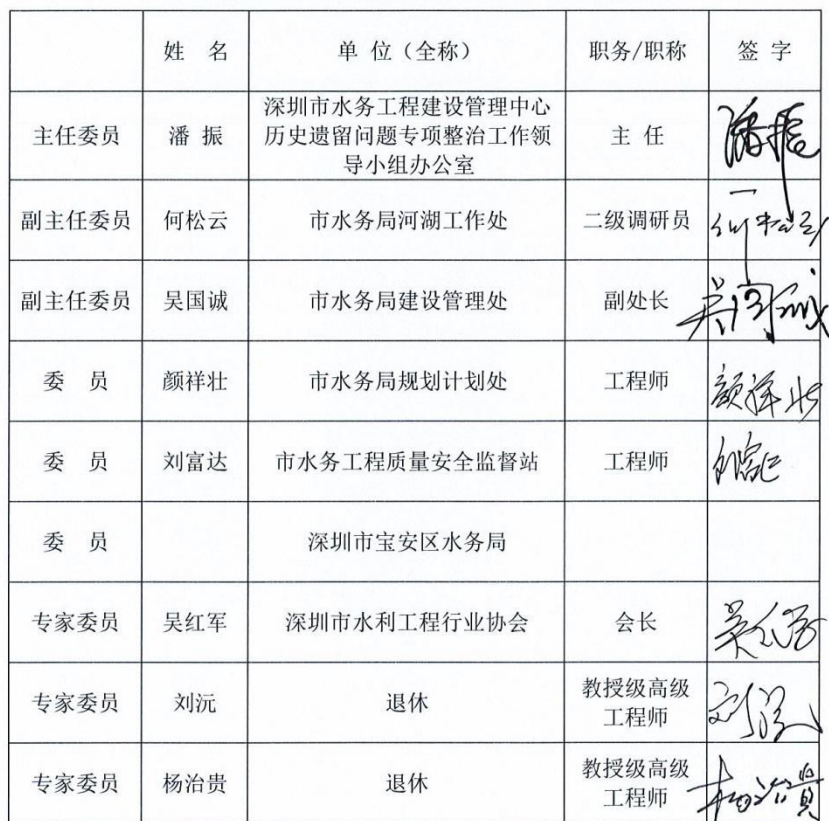 姓 名 单 位（全称） 职务/职称 签 字
主任委员 潘 振 深圳市水务工程建设管理中心
历史遗留问题专项整治工作领
导小组办公室 主 任 潘振
副主任委员 何松云 市水务局河湖工作处 二级调研员 何松云
副主任委员 吴国诚 市水务局建设管理处 副处长 吴国诚
委 员 颜祥壮 市水务局规划计划处 工程师 颜祥壮
委 员 刘富达 市水务工程质量安全监督站 工程师 刘富达
委 员 深圳市宝安区水务局
专家委员 吴红军 深圳市水利工程行业协会 会长 吴红军
专家委员 刘沅 退休 教授级高级
工程师 刘沅
专家委员 杨治贵 退休 教授级高级
工程师 杨治贵